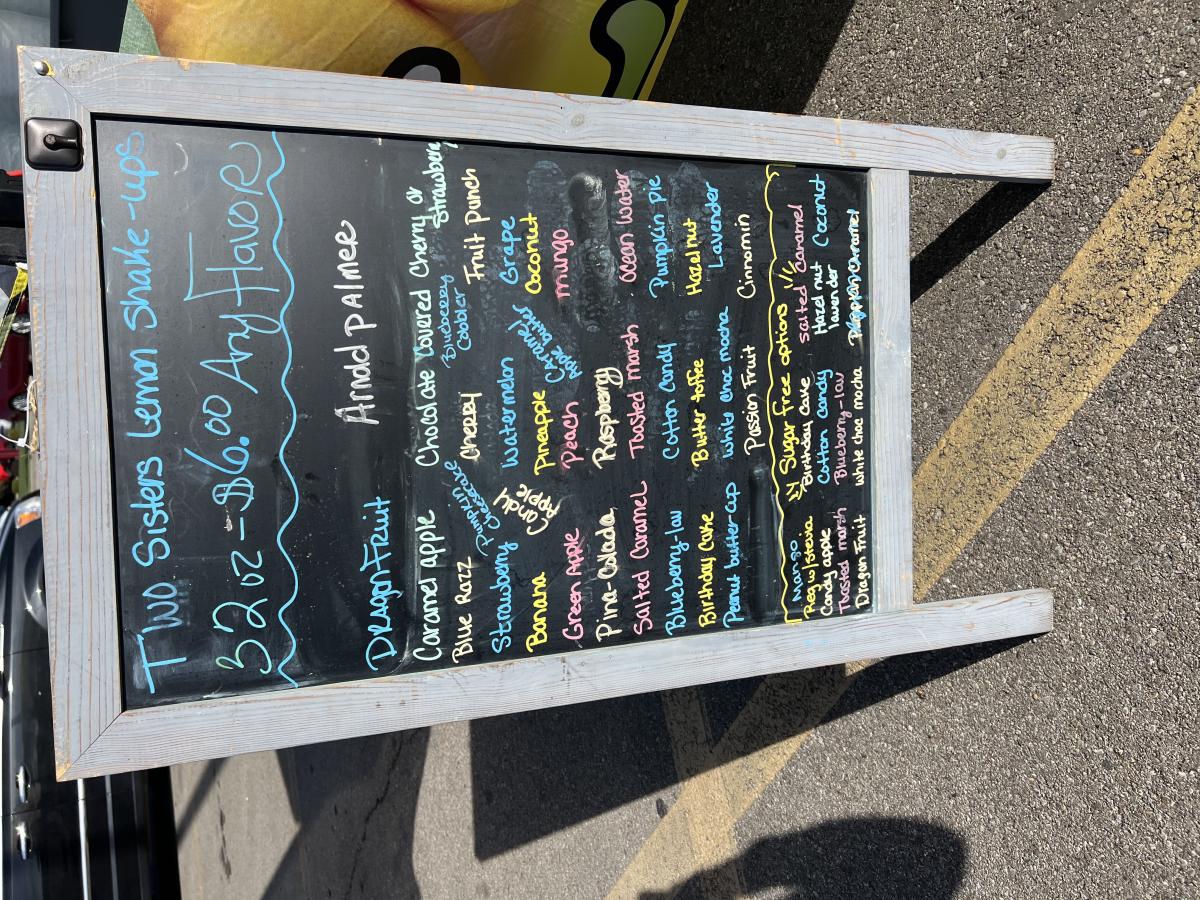 Two Sisters Lemon Shake-ups
32 oz - $6.00 Any Flavor
Arnold Palmer
Dragon Fruit
Caramel apple Chocolate Covered Cherry or Strawberry
Blue Razz Pumpkin Cheesecake Cherry Blueberry Cobbler Fruit Punch
Strawberry Watermelon Grape
Banana Candy Apple Pineapple Caramel Apple butter Coconut
Green Apple Peach mungo
Pina-Colada Raspberry
Salted Caramel Toasted marsh Ocean Water
Blueberry-lav Cotton Candy Pumpkin pie
Birthday Cake Butter toffee Hazel nut
Peanut butter cup White choc mocha Lavender
Passion Fruit Cinnomin
Mango Sugar free options
Reg w/stevia Birthday Cake salted caramel
Candy apple Cotton candy Hazel nut Coconut
Toasted marsh Blueberry-lav lavender
Dragon Fruit White choc mocha